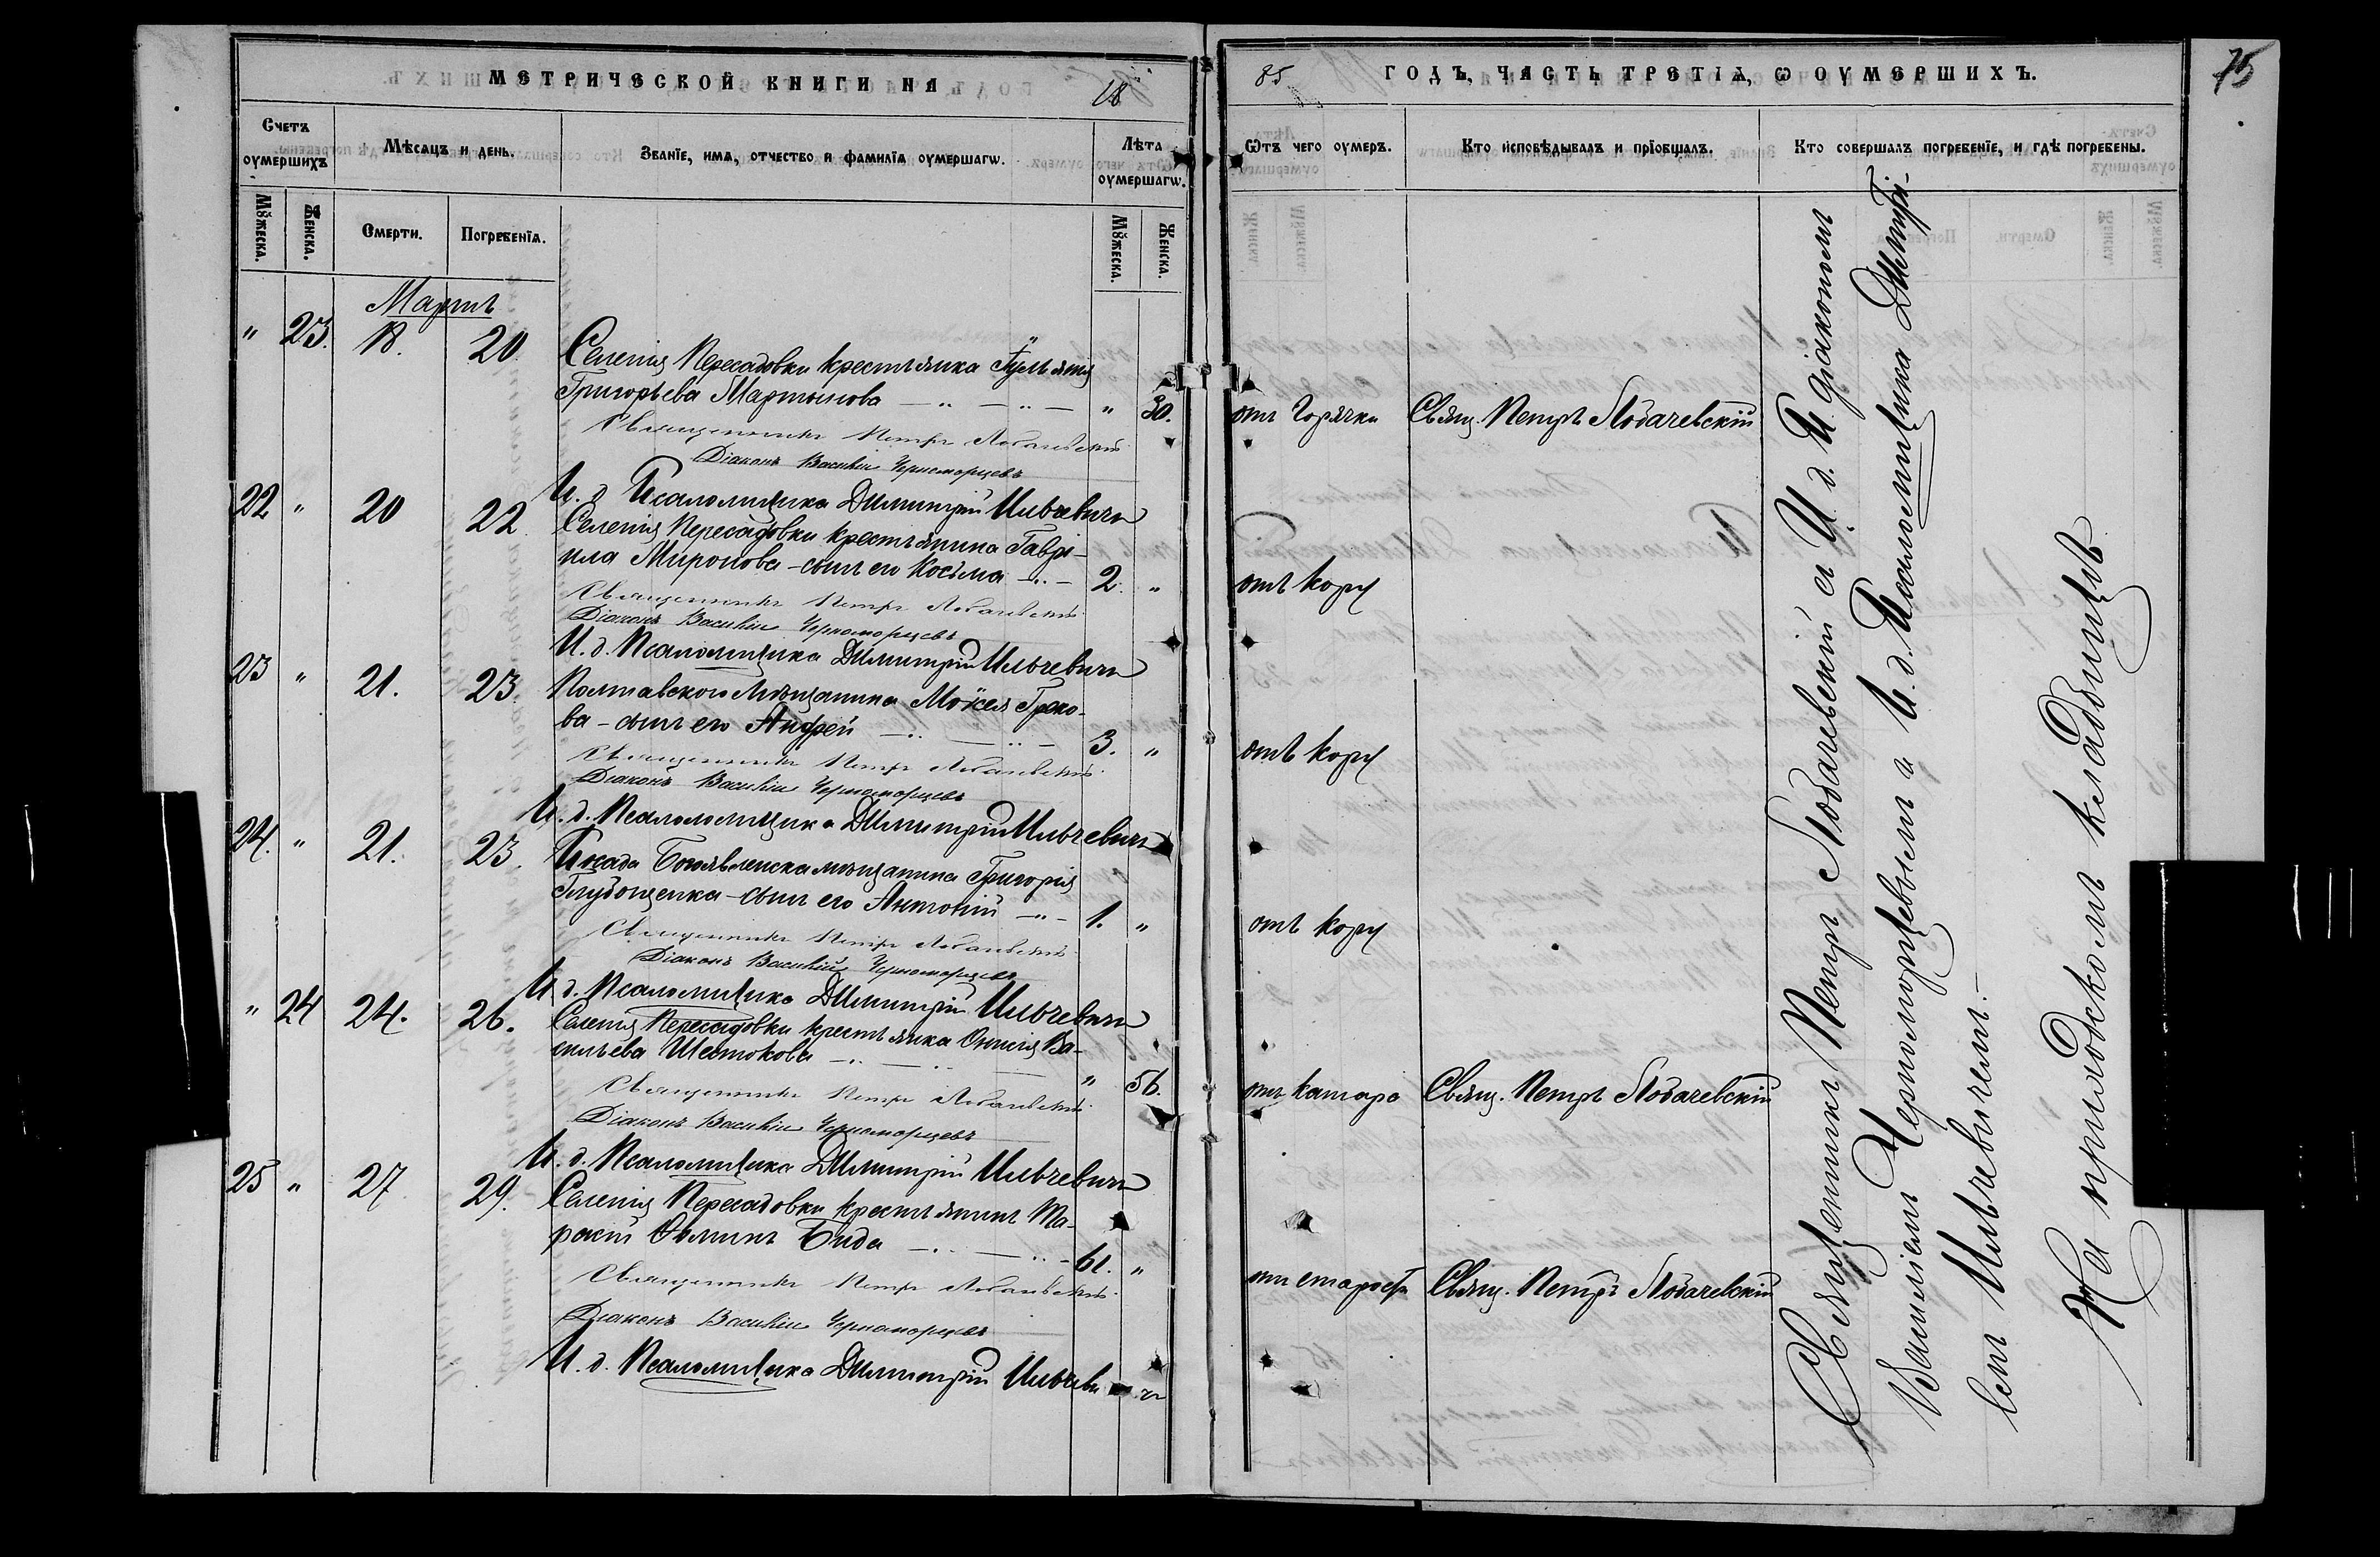 МЕТРИЧЕСКОЙ КНИГИ НА 18
Счетъ оумершихъ
Мѣсяцъ и день.
Званїе, имя, отчество и фамилїя оумершагѡ.
Лѣта оумершагѡ.
Мꙋжеска.
Женска.
Смерти.
Погребенїя.
Мꙋжеска.
Женска.
Мартъ
" 23. 18. 20 Селенія Пересадовки крестьянка
Григорьева Мартынова " 30.
Священникъ Петръ Лобачевскій
Діаконъ Василій Черноморцевъ
И. д. Псаломщика Димитрій Ильчевичъ
22 " 20 22 Селенія Пересадовки крестьянина Гаврі-
ила Миронова - сынъ его Косьма 2. "
Священникъ Петръ Лобачевскій
Діаконъ Василій Черноморцевъ
И. д. Псаломщика Димитрій Ильчевичъ
23 " 21. 23. Полтавского мѣщанина Моѵсея Греко-
ва - сынъ его Андрей 3. "
Священникъ Петръ Лобачевскій
Діаконъ Василій Черноморцевъ
И. д. Псаломщика Димитрій Ильчевичъ
24. " 21. 23. Посада Богоявленска мѣщанина Григорія
сынъ его Антоній 1. "
Священникъ Петръ Лобачевскій
Діаконъ Василій Черноморцевъ
И. д. Псаломщика Димитрій Ильчевичъ
" 24 24. 26. Селенія Пересадовки крестьянка Ва-
сильева Шестокова " 56.
Священникъ Петръ Лобачевскій
Діаконъ Василій Черноморцевъ
И. д. Псаломщика Димитрій Ильчевичъ
25 " 27 29. Селенія Пересадовки крестьянинъ
Ѳоминъ Бида 61. "
Священникъ Петръ Лобачевскій
Діаконъ Василій Черноморцевъ
И. д. Псаломщика Димитрій Ильчевичъ
85 ГОДЪ, ЧАСТЬ ТРЕТІЯ, Ѡ ОУМЕРШИХЪ.
75
Ѿтъ чего оумеръ.
Кто исповѣдывалъ и прїобщалъ.
Кто совершалъ погребенїе, и гдѣ погребены.
отъ горячки Свящ. Петръ Лобачевскій
отъ кору
отъ кору
отъ кору
отъ катара Свящ. Петръ Лобачевскій
отъ старости Свящ. Петръ Лобачевскій
Священникъ Петръ Лобачевскій съ И. д. діакономъ
Василіемъ Черноморцевымъ и И. д. Псаломщика Дмитрі-
емъ Ильчевичемъ.-
На приходскомъ кладбищѣ